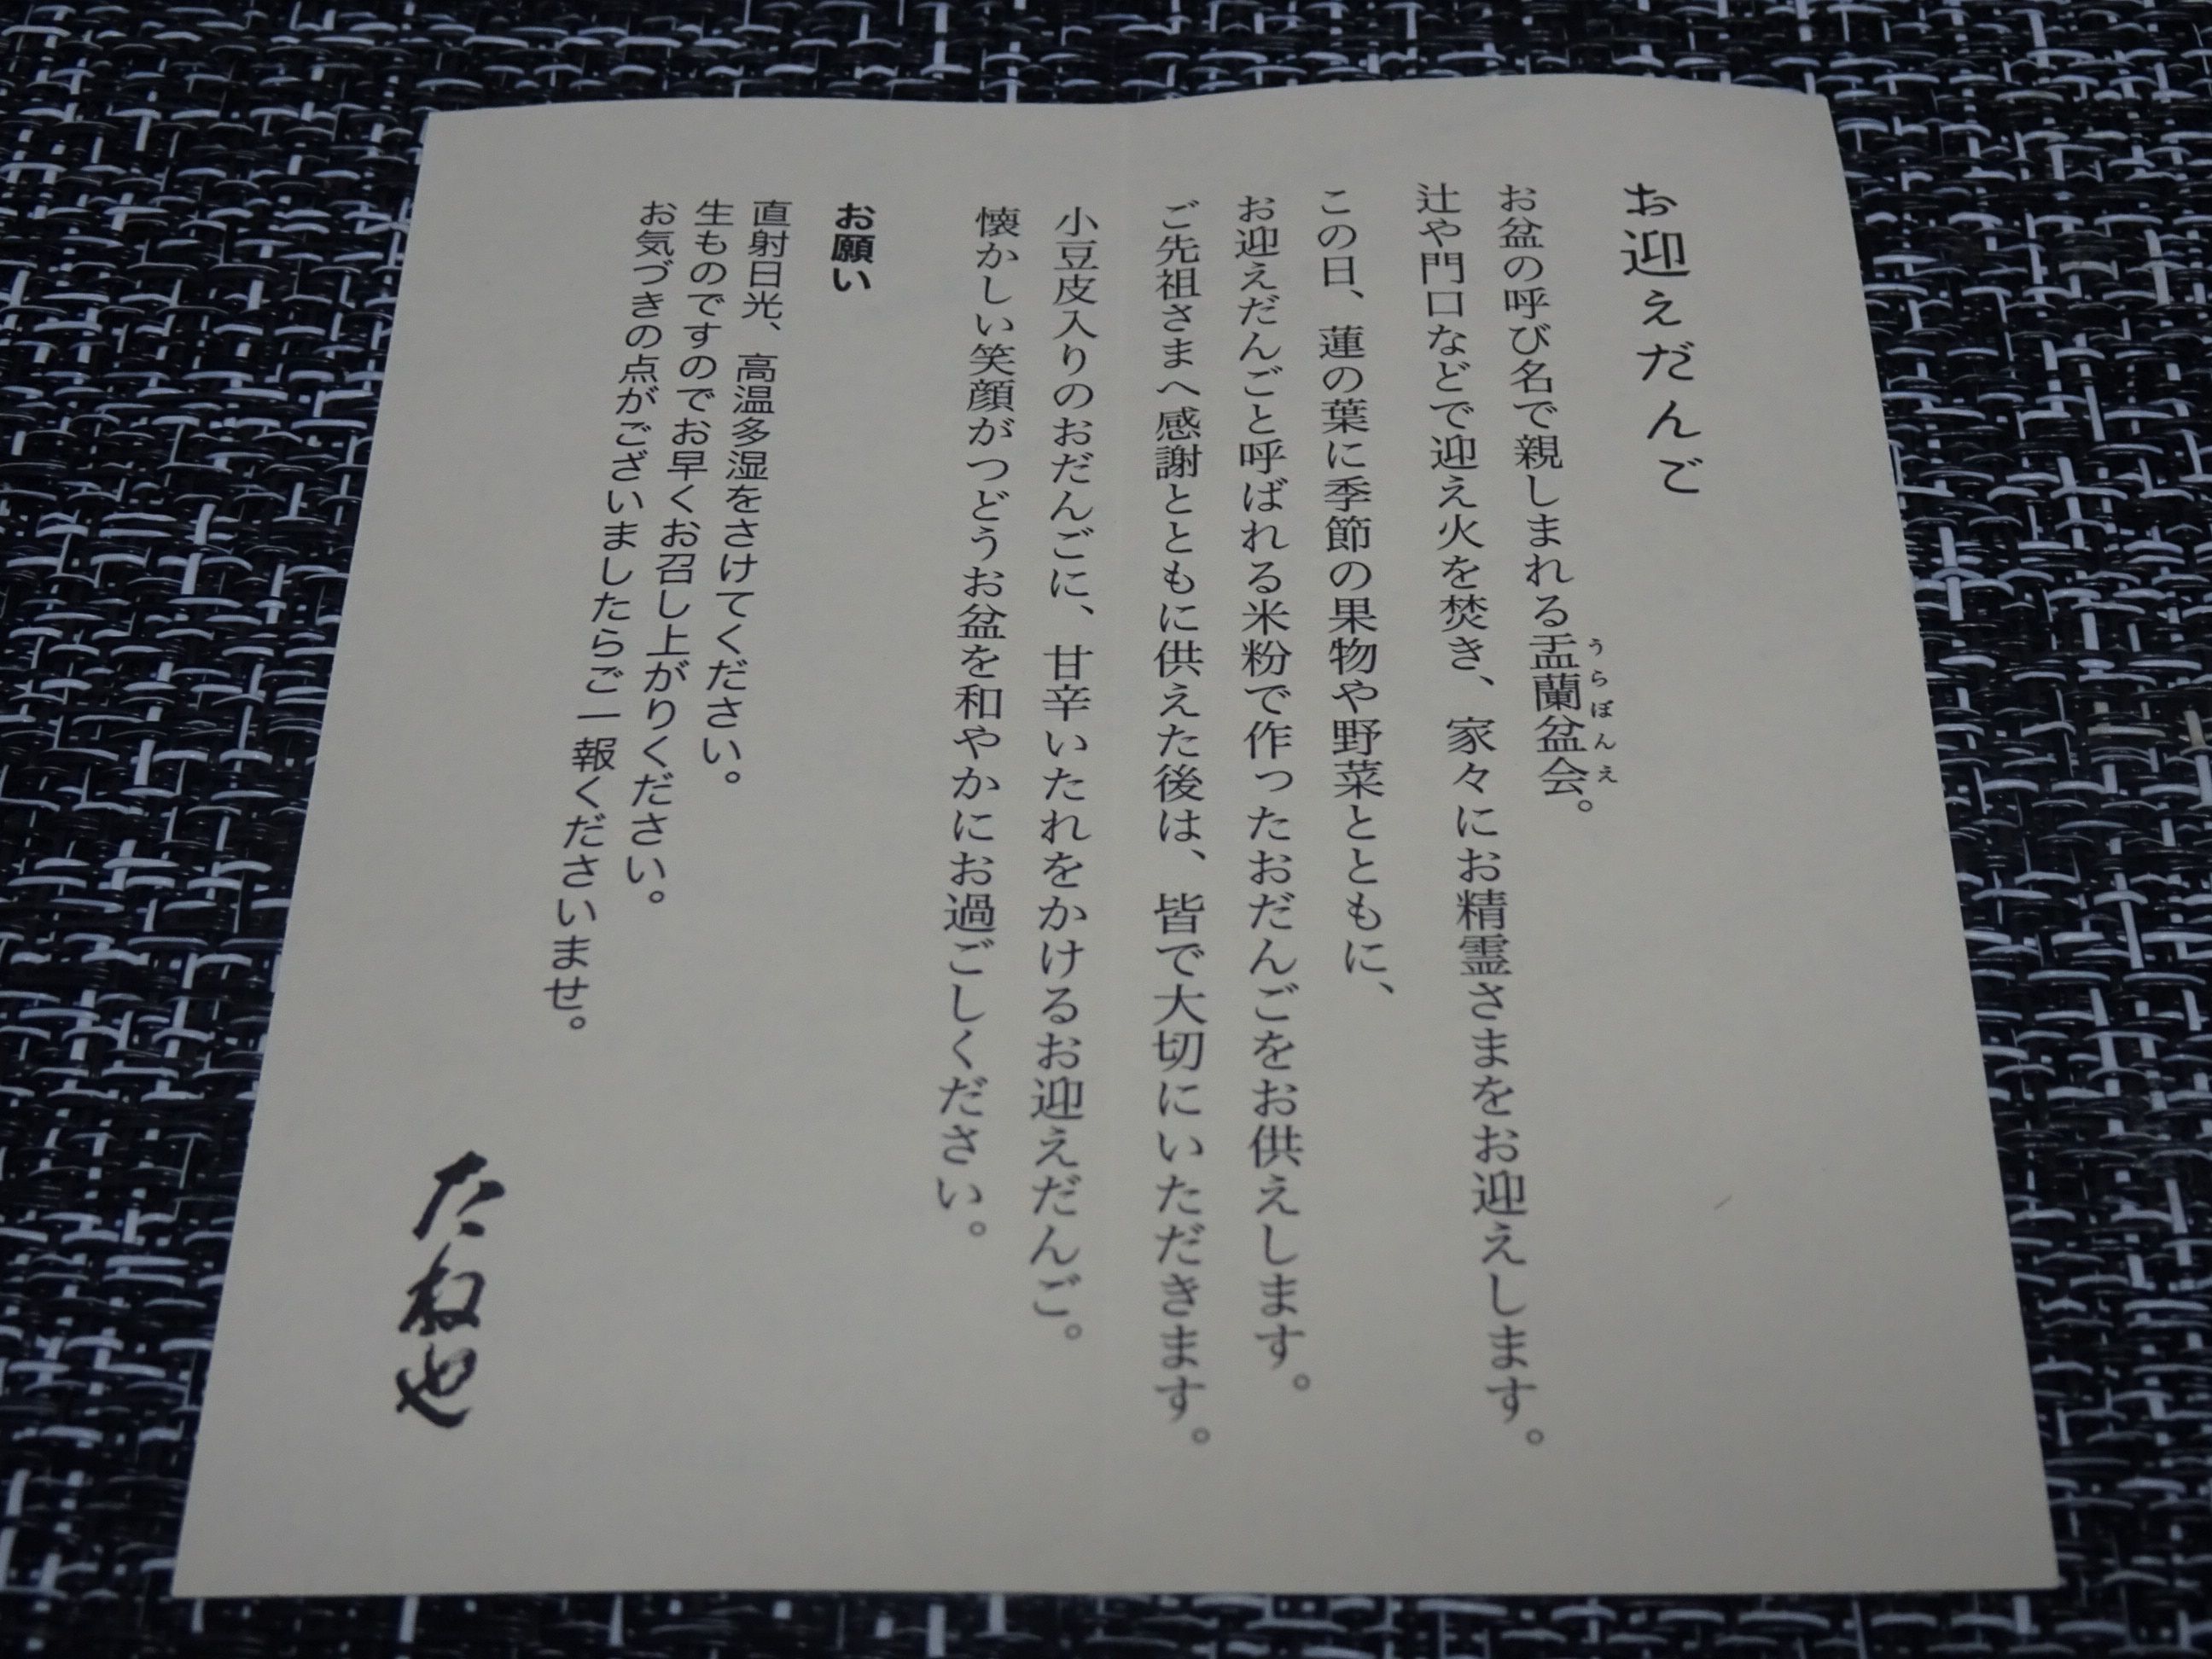 お迎えだんご
お盆の呼び名で親しまれる盂蘭盆会。
うらぼんえ
辻や門口などで迎え火を焚き、家々にお精霊さまをお迎えします。
この日、蓮の葉に季節の果物や野菜とともに、
お迎えだんごと呼ばれる米粉で作ったおだんごをお供えします。
ご先祖さまへ感謝とともに供えた後は、皆で大切にいただきます。
小豆皮入りのおだんごに、甘辛いたれをかけるお迎えだんご。
懐かしい笑顔がつどうお盆を和やかにお過ごしください。
お願い
直射日光、高温多湿をさけてください。
生ものですのでお早くお召し上がりください。
お気づきの点がございましたらご一報くださいませ。
たねや